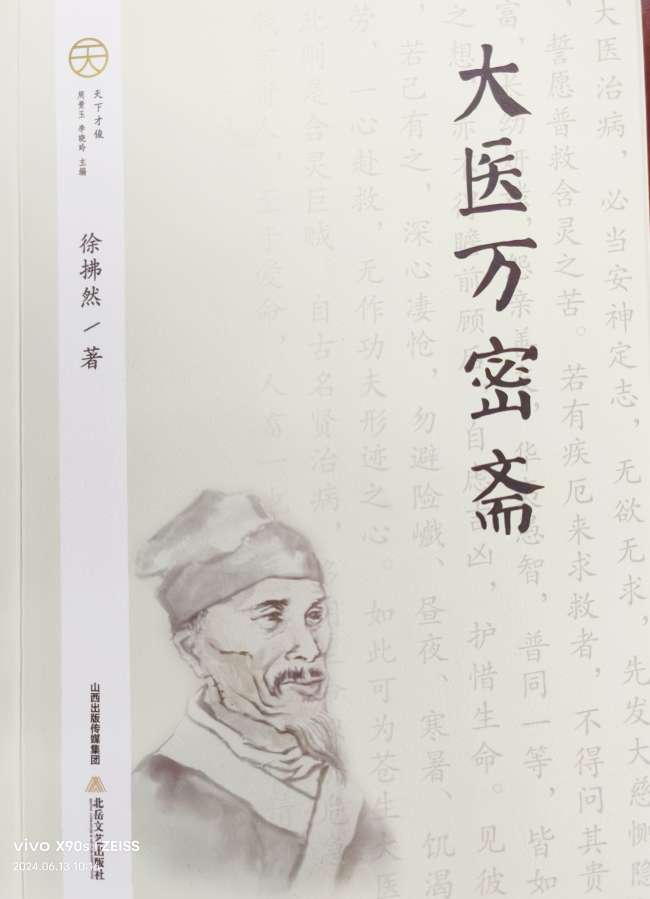 大医万密斋
天下才俊
周蓬玉 李晓岭 主编
徐拂然/著
大医治病，必当安神定志，无欲无求，先发大慈恻隐
誓愿普救含灵之苦。若有疾厄来求救者，不得问其贵
富，长幼妍 怨亲善 华 愚智，普同一等，皆如
之想，亦不得瞻前顾后，自虑吉凶，护惜生命。见彼
，若己有之，深心凄怆，勿避险巇、昼夜、寒暑、饥渴
劳，一心赴救，无作功夫形迹之心。如此可为苍生大医
此则是含灵巨贼。自古名贤治病，
至于爱命，人畜一
山西出版传媒集团
北岳文艺出版社
vivo X90s | ZEISS
2024.06.13 10:16